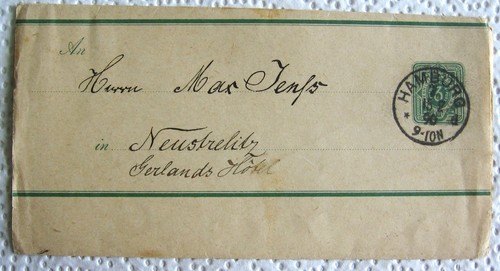 An
Herrn Max Jenss
in Neustrelitz
Gerlands Hôtel
HAMBURG
9-10N